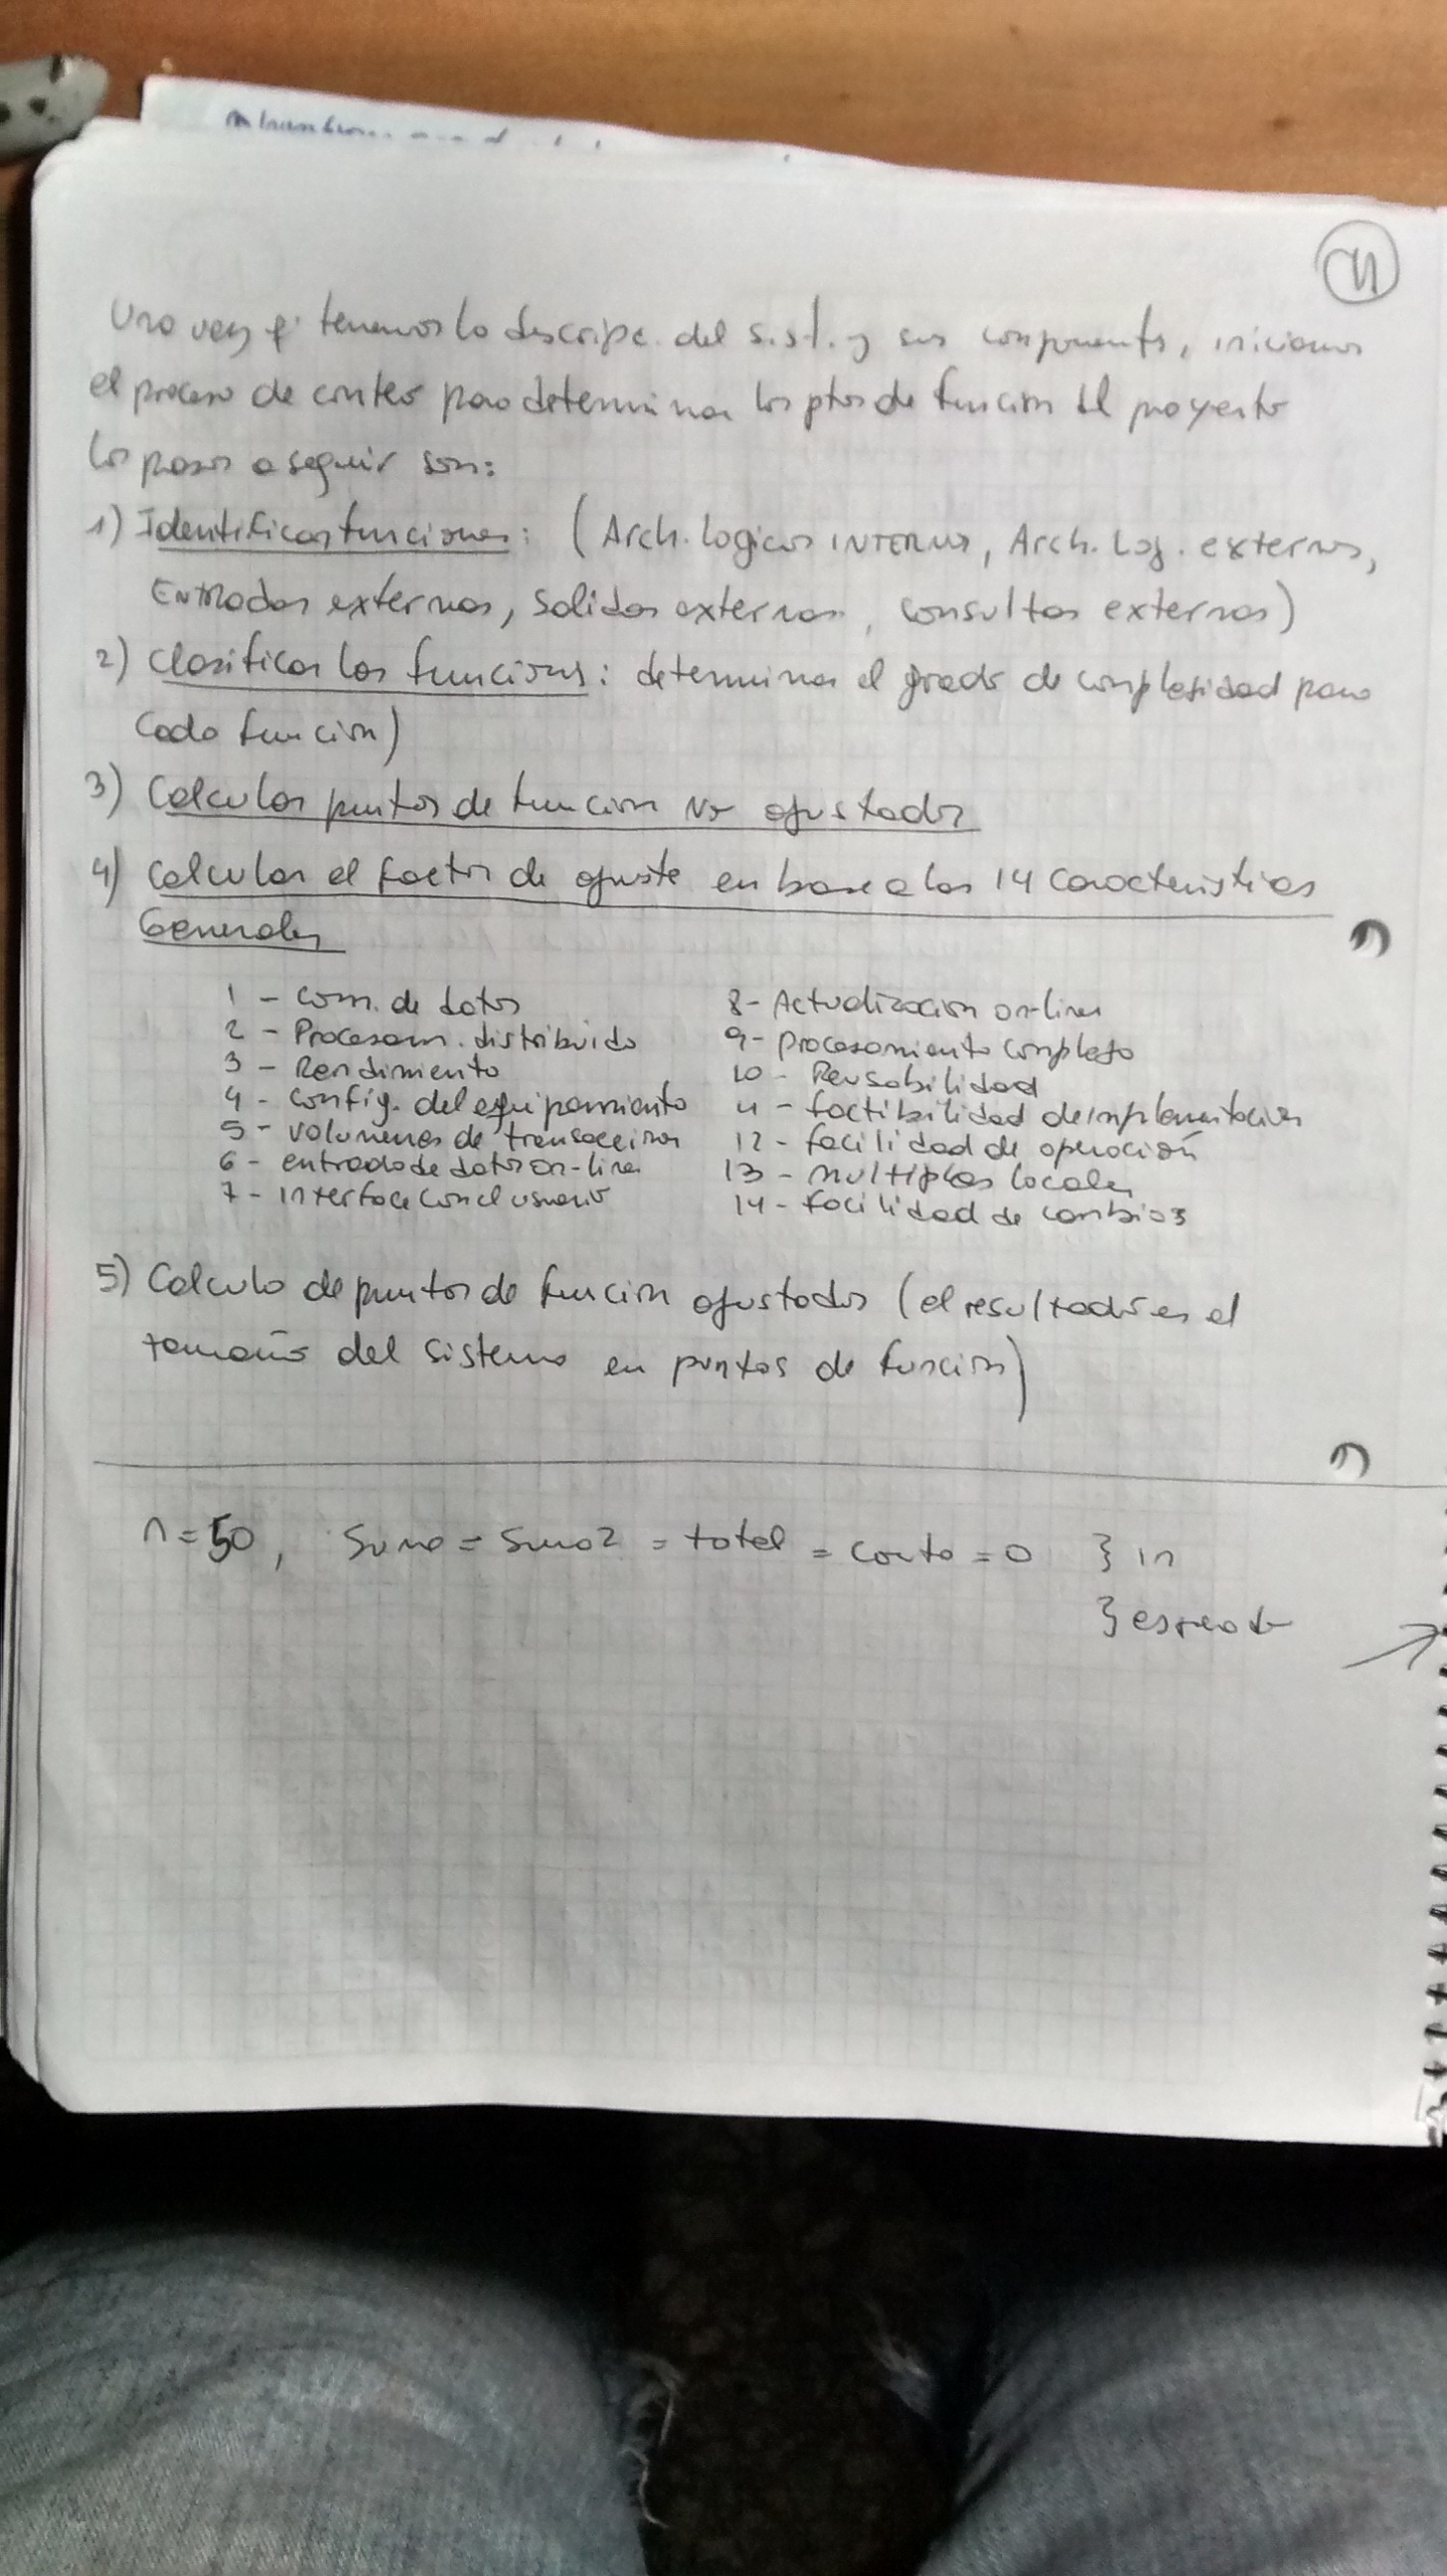 11
Una vez q' tenemos la descripc. del sist. y sus componentes, iniciamos
el proceso de conteo para determinar los ptos de función del proyecto
los pasos a seguir son:
1) Identificar funciones: (Arch. logicos INTERNOS, Arch. Log. externos,
Entradas externas, Salidas externas, consultas externas)
2) Clasificar las funciones: determinar el grado de complejidad para
cada función)
3) Calcular puntos de función no ajustados
4) Calcular el factor de ajuste en base a las 14 características
Generales
1 - Com. de datos
2 - Procesam. distribuido
3 - Rendimiento
4 - Config. del equipamiento
5 - Volumenes de transacciones
6 - entrada de datos on-line
7 - interface con el usuario
8 - Actualizacion on-line
9 - procesamiento complejo
10 - Reusabilidad
11 - factibilidad de implementacion
12 - facilidad de operación
13 - multiples locales
14 - facilidad de cambios
5) Calculo de puntos de función ajustados (el resultado es el
tamaño del sistema en puntos de función)
n = 50, Suma = Suma2 = total = conta = 0 } in